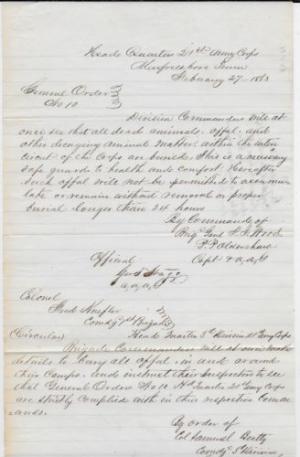 Head Quarters 21st Army Corps
Murfreesboro Tenn
February 27 - 1863
General Order
No 10
Division Commanders will at
once see that all dead animals, offal, and
other decaying animal matter within the
circuit of the Corps are buried. This is a necessary
safe guard to health and comfort. Hereafter
such offal will not be permitted to accumu
late or remain without removal or proper
burial longer than 24 hours
By Command of
Brig Genl T. J. Wood
P. P. Oldershaw
Capt & A. A. G
Official
A. A. A. G
Colonel
Fred Knefler
Comdg 1st Brigade
Circular Head Quarters 3d Division 21st Army Corps
Brigade Commanders will at once make
details to bury all offal, in and around
their Camps. and instruct their Inspectors to see
that General Orders No 10. Hd Quarters 21st Army Corps
are strictly complied with in their respective Comm
ands.
By order of
Col Samuel Beatty
Comdg 3d Division